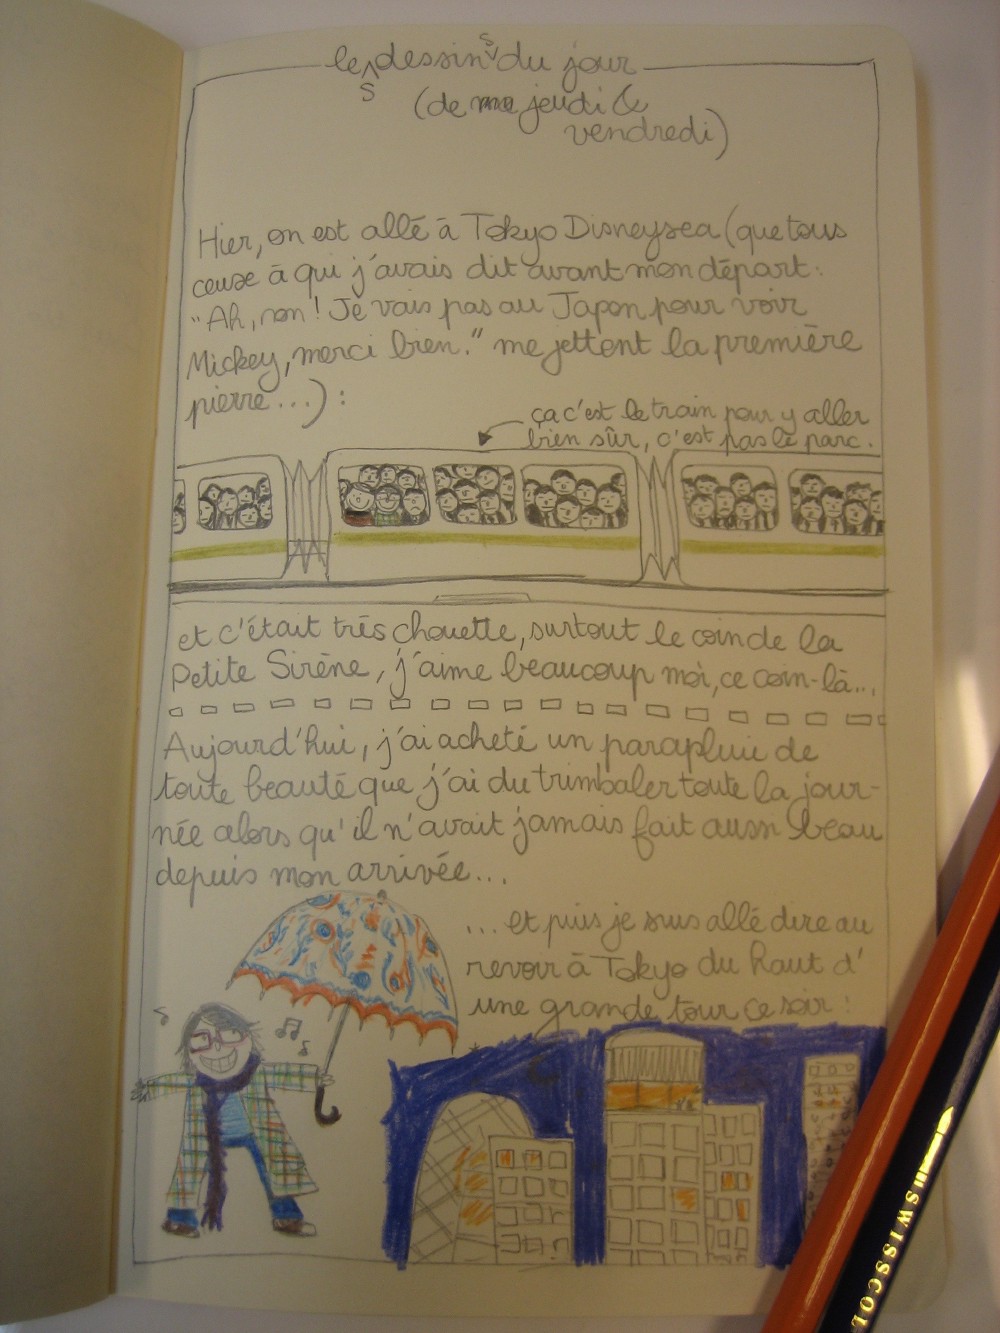 les dessins du jour
(de jeudi &
vendredi)
Hier, on est allé à Tokyo Disneysea (que tous
ceuxe à qui j'avais dit avant mon départ:
"Ah, non! Je vais pas au Japon pour voir
Mickey, merci bien." me jettent la première
pierre...):
ça c'est le train pour y aller
bien sûr, c'est pas le parc.
et c'était très chouette, surtout le coin de la
Petite Sirène, j'aime beaucoup moi, ce coin-là...
Aujourd'hui, j'ai acheté un parapluie de
toute beauté que j'ai du trimbaler toute la jour-
née alors qu'il n'avait jamais fait aussi beau
depuis mon arrivée...
...et puis je suis allé dire au
revoir à Tokyo du haut d'
une grande tour ce soir:
SWISSCOL